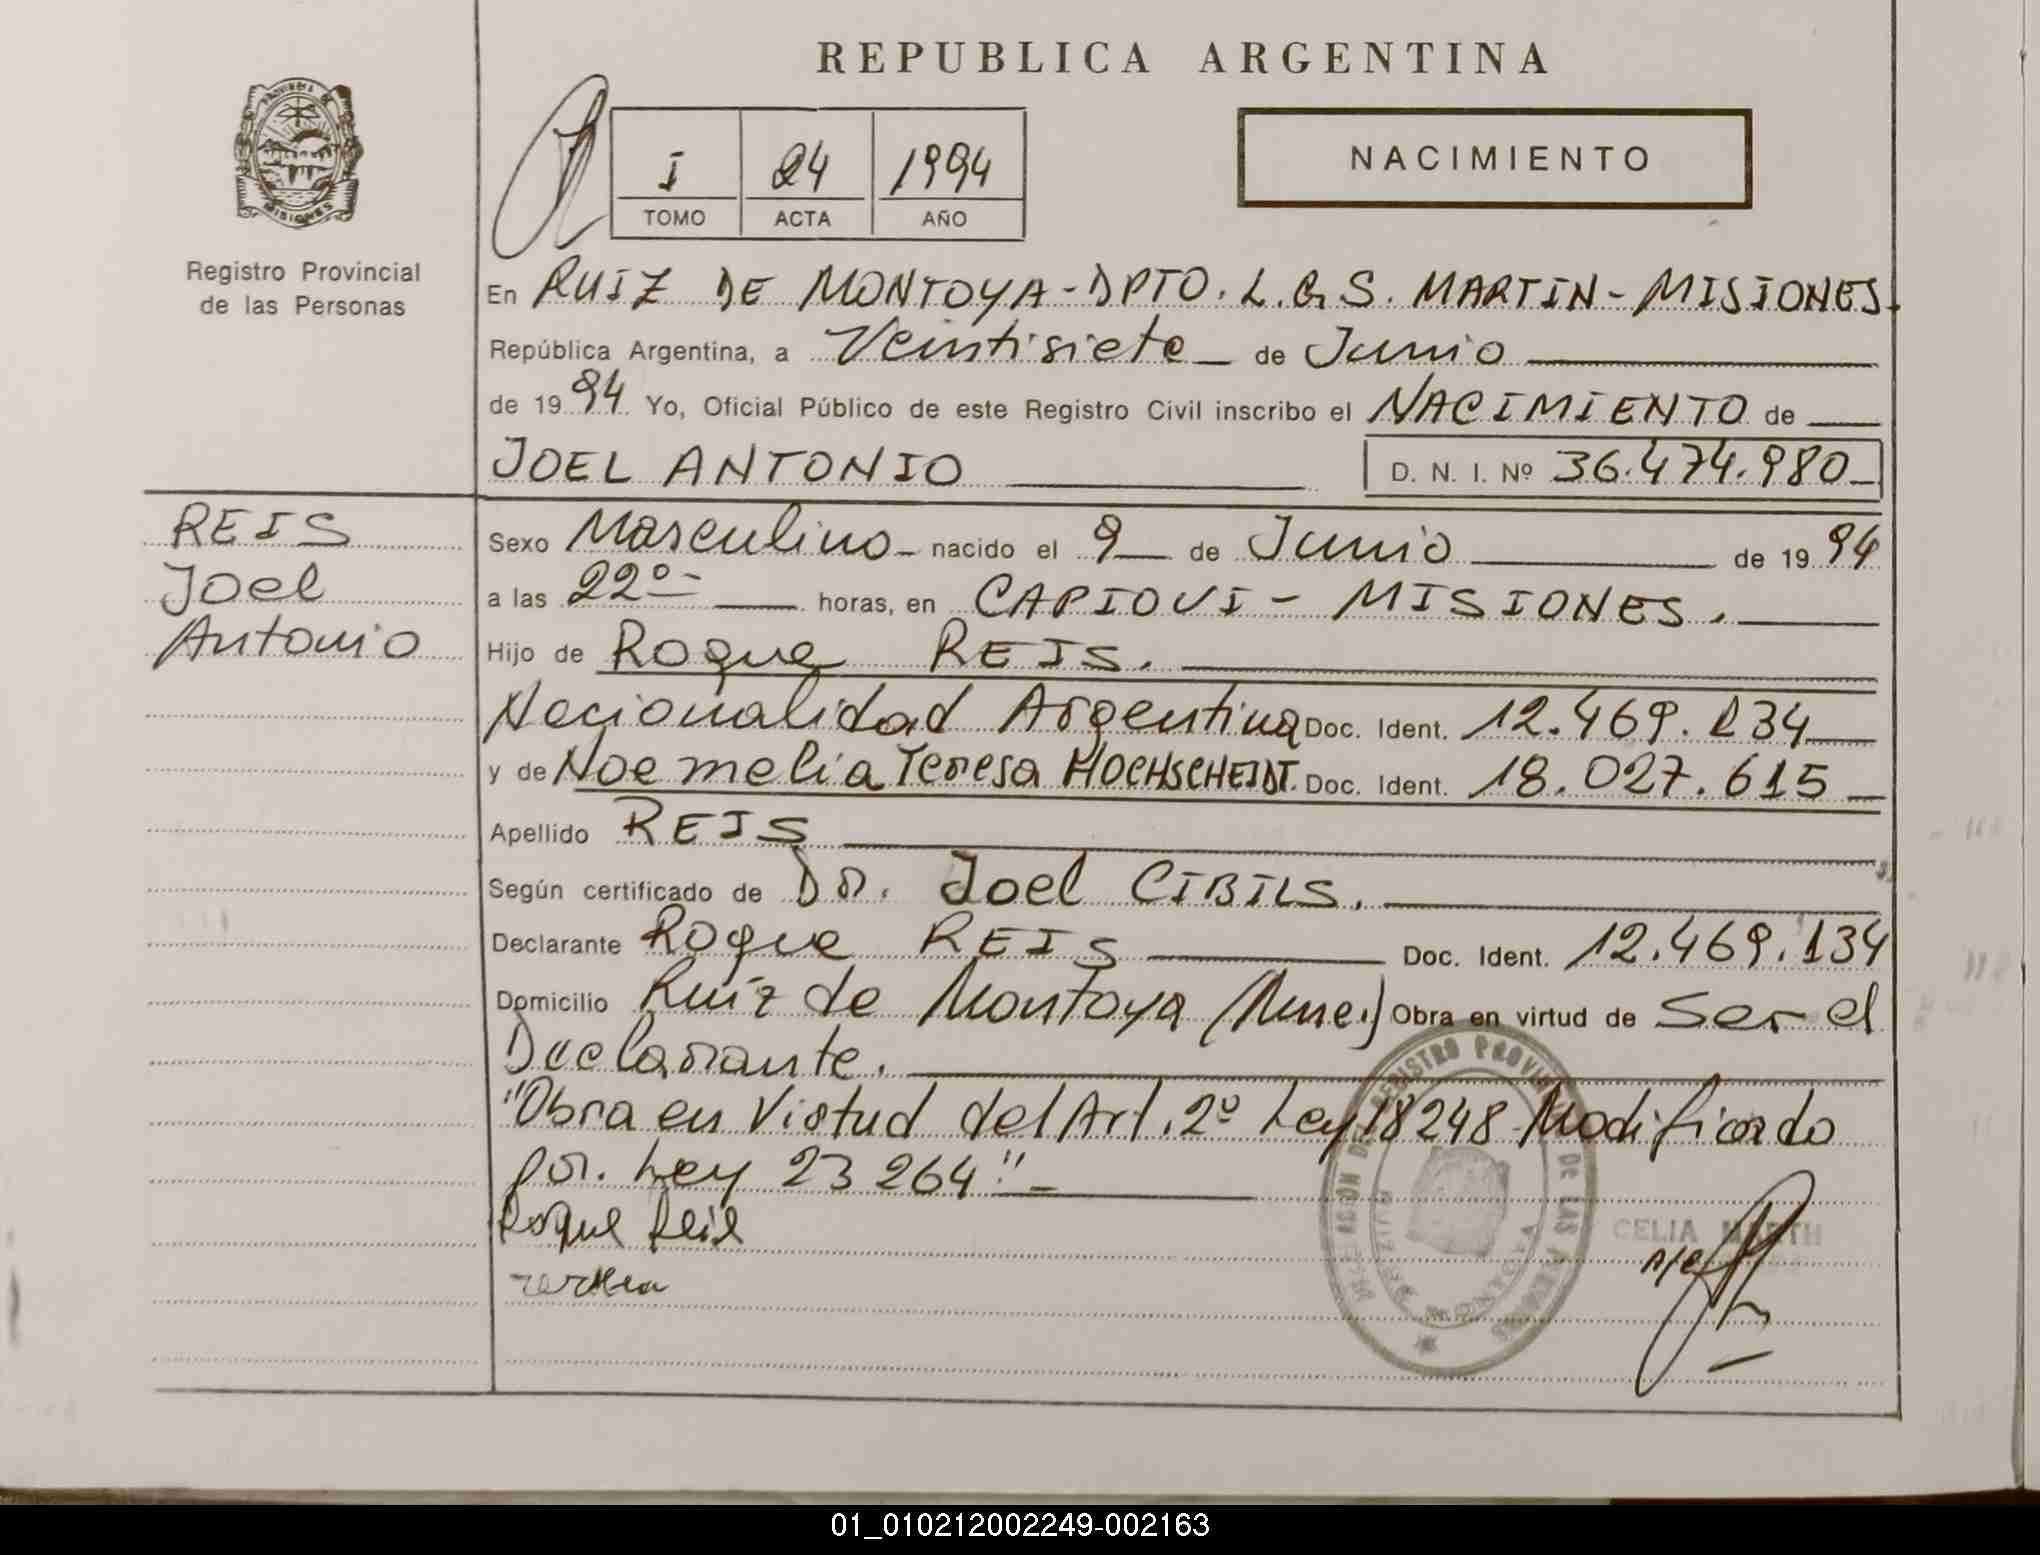 REPUBLICA ARGENTINA
NACIMIENTO
I 24 1994
TOMO ACTA AÑO
PROVINCIA DE
MISIONES
Registro Provincial
de las Personas
En RUIZ DE MONTOYA - DPTO. L.G.S. MARTIN - MISIONES.
República Argentina, a Veintisiete de Junio
de 1994 Yo, Oficial Público de este Registro Civil inscribo el NACIMIENTO de
JOEL ANTONIO D. N. I. Nº 36.474.980
REIS
Joel
Antonio
Sexo Masculino nacido el 9 de Junio de 1994
a las 22º horas, en CAPIOVI - MISIONES.
Hijo de Roque REIS.
Nacionalidad Argentina Doc. Ident. 12.469.134
y de Noemelia Teresa HOCHSCHEIDT. Doc. Ident. 18.027.615
Apellido REIS
Según certificado de Dr. Joel CIBILS.
Declarante Roque REIS Doc. Ident. 12.469.134
Domicilio Ruiz de Montoya (Mnes.) Obra en virtud de Ser el
Declarante.
"Obra en Virtud del Art. 2º Ley 18248 Modificado
por. Ley 23264"
Roque Reis
CELIA
01_010212002249-002163